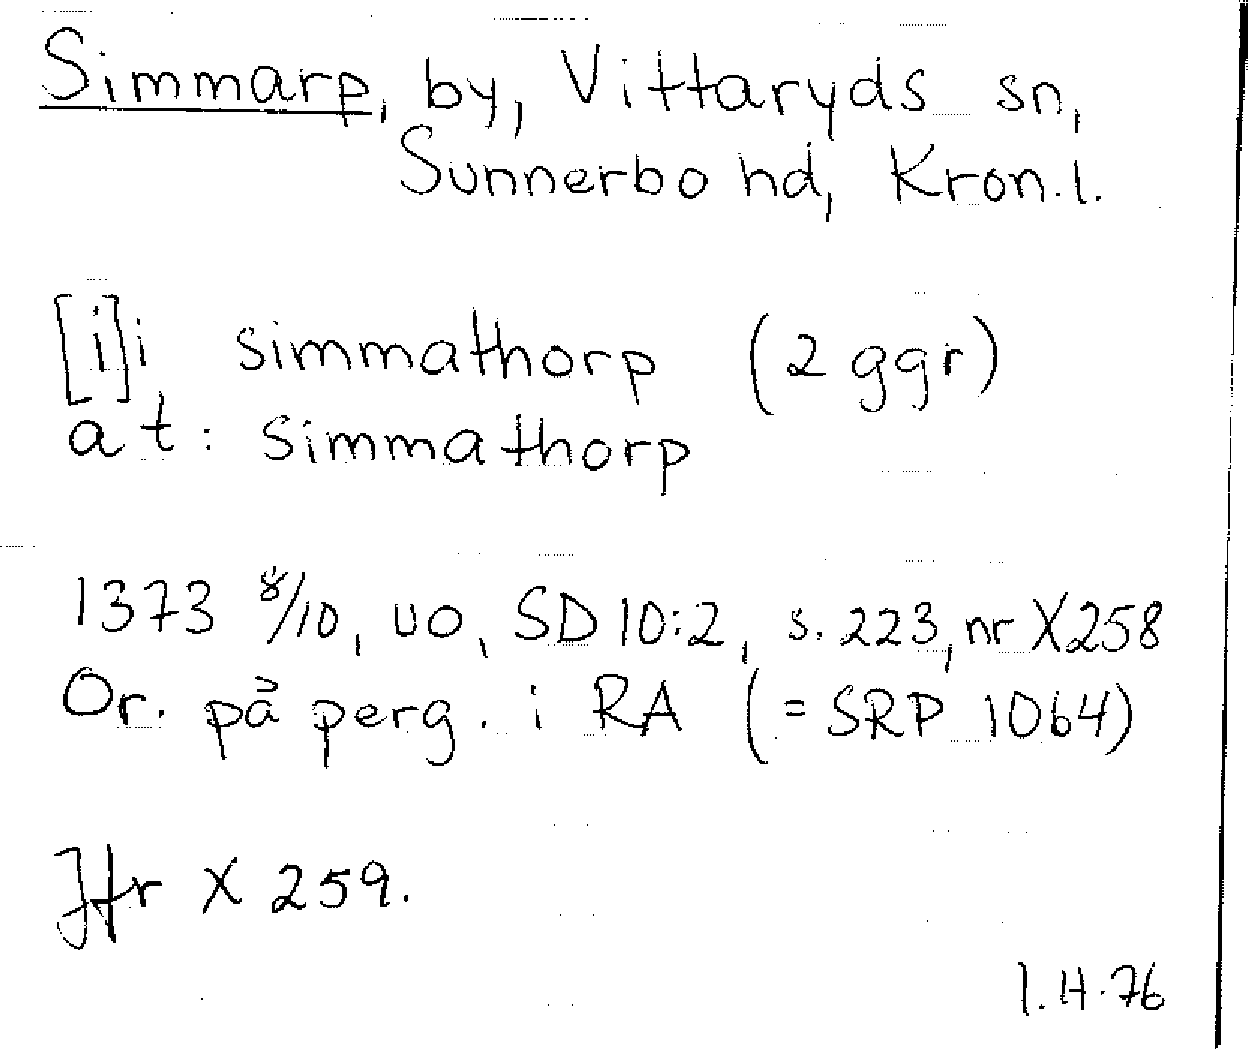 Simmarp, by, Vittaryds sn,
Sunnerbo hd, Kron.l.
[i] i simmathorp (2 ggr)
at: simmathorp
1373 8/10, uo, SD 10:2, s. 223, nr X258
Or. på perg. i RA (= SRP 1064)
Jfr X 259.
I.H.76